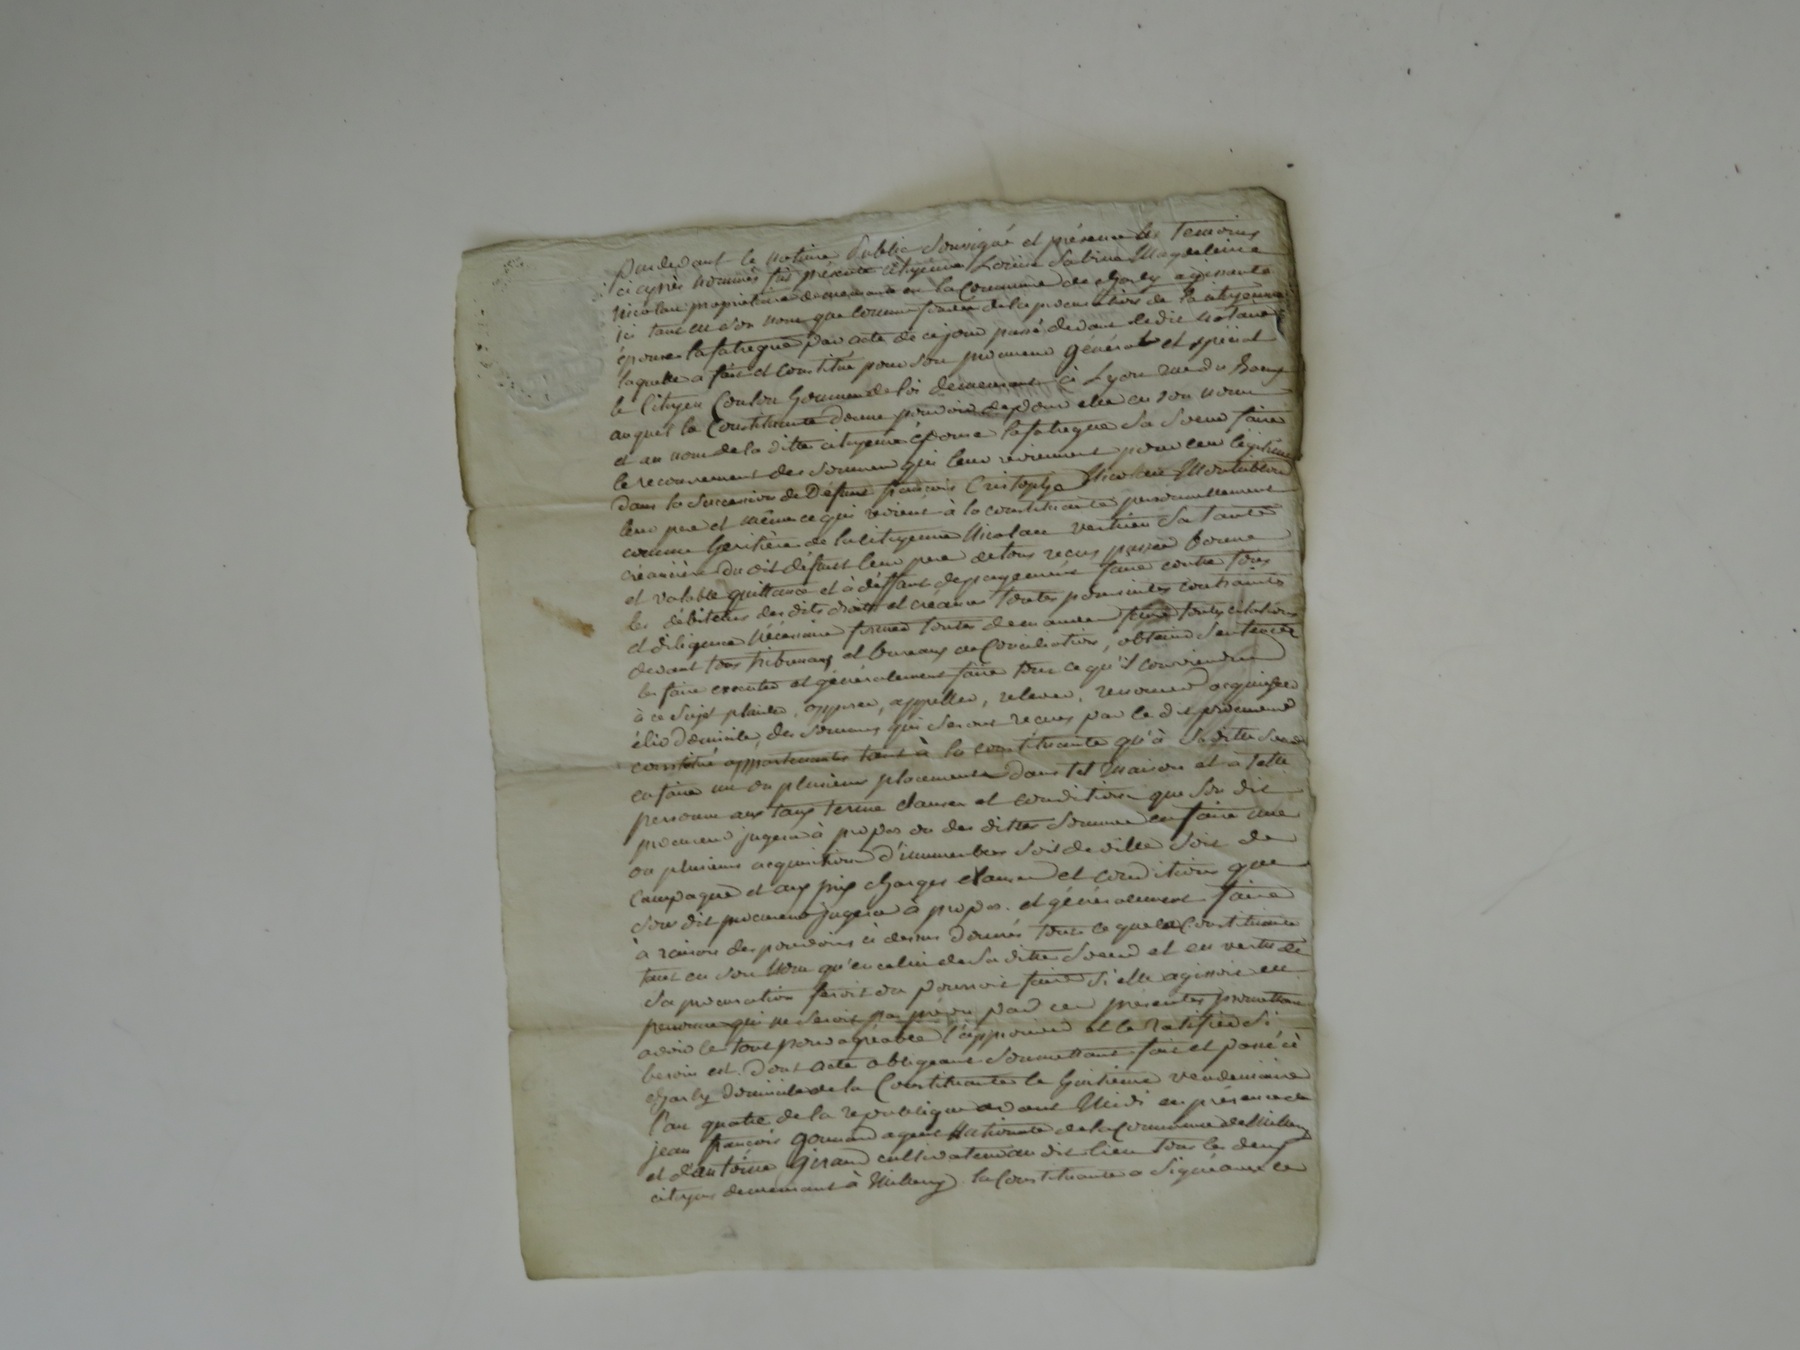 Pardevant le notaire Public soussigné et présence des temoins
ci après nommés fut présente citoyenne Louise Sabine Magdeleine
Nicolau propriétaire demeurante en la Commune de charly agissante
ici tant en son nom que comme fondée de la procuration de la citoyenne
épouse lafabregue par acte de ce jour passé devant le dit notaire
laquelle a fait et constitué pour son procureur général et spécial
le Citoyen Coulou hommes de loi demeurant à Lyon rue du Boeuf
auquel la Constituante donne pouvoir de pour elle en son nom
et au nom de la ditte citoyenne épouse lafabregue sa soeur faire
le recouvrement des sommes qui leur reviennent pour leur légitime
dans la succession de Défunt françois Cristophe Nicolau Montribloud
leur pere et même ce qui revient à la constituante personnellement
comme heritière de la citoyenne Nicolau sa tante
créancière du dit défunt leur pere de tous reçus passer bonne
et valable quittance et à déffaut de payement faire contre tous
les débiteurs des dits droits et créances toutes poursuites contraintes
et diligence Nécessaire former toutes demandes faire toutes citations
devant tous tribunaux et bureaux de Conciliation, obtenir sentences
les faire executer et généralement faire tout ce qu'il conviendra
à ce sujet plaider, opposer, appeller, relever, renoncer acquiescer
élire domicile, des sommes qui seront reçues par le dit procureur
constitué appartenantes tant à la constituante qu'à sa ditte soeur
en faire un ou plusieurs placements dans tel maison et a telle
personne aux taux terme clauses et conditions que son dit
procureur jugera à propos ou des dittes sommes en faire une
ou plusieurs acquisitions d'immeubles soit de ville soit de
Campagne et aux prix charges clauses et conditions que
son dit procureur jugera à propos. et généralement faire
à raison des pouvoirs ci dessus donnés tout ce que la Constituante
tant en son Nom qu'en celui de sa ditte soeur et en vertu de
sa procuration feroit ou pourroit faire si elle agissoit en
personne qui ne seroit pas prévu par ces présentes promettant
avoir le tout pour agréable l'approuver et le ratifier si
besoin est. Dont acte obligeant soumettant fait et passé à
charly domicile de la Constituante le huitieme vendemiaire
l'an quatre de la république avant Midi en présence de
jean françois gonnand agent Nationale de la Commune de Millery
et d'antoine Giraud cultivateur au dit lieu tous les deux
citoyens demeurant à Millery. la Constituante a signé avec le